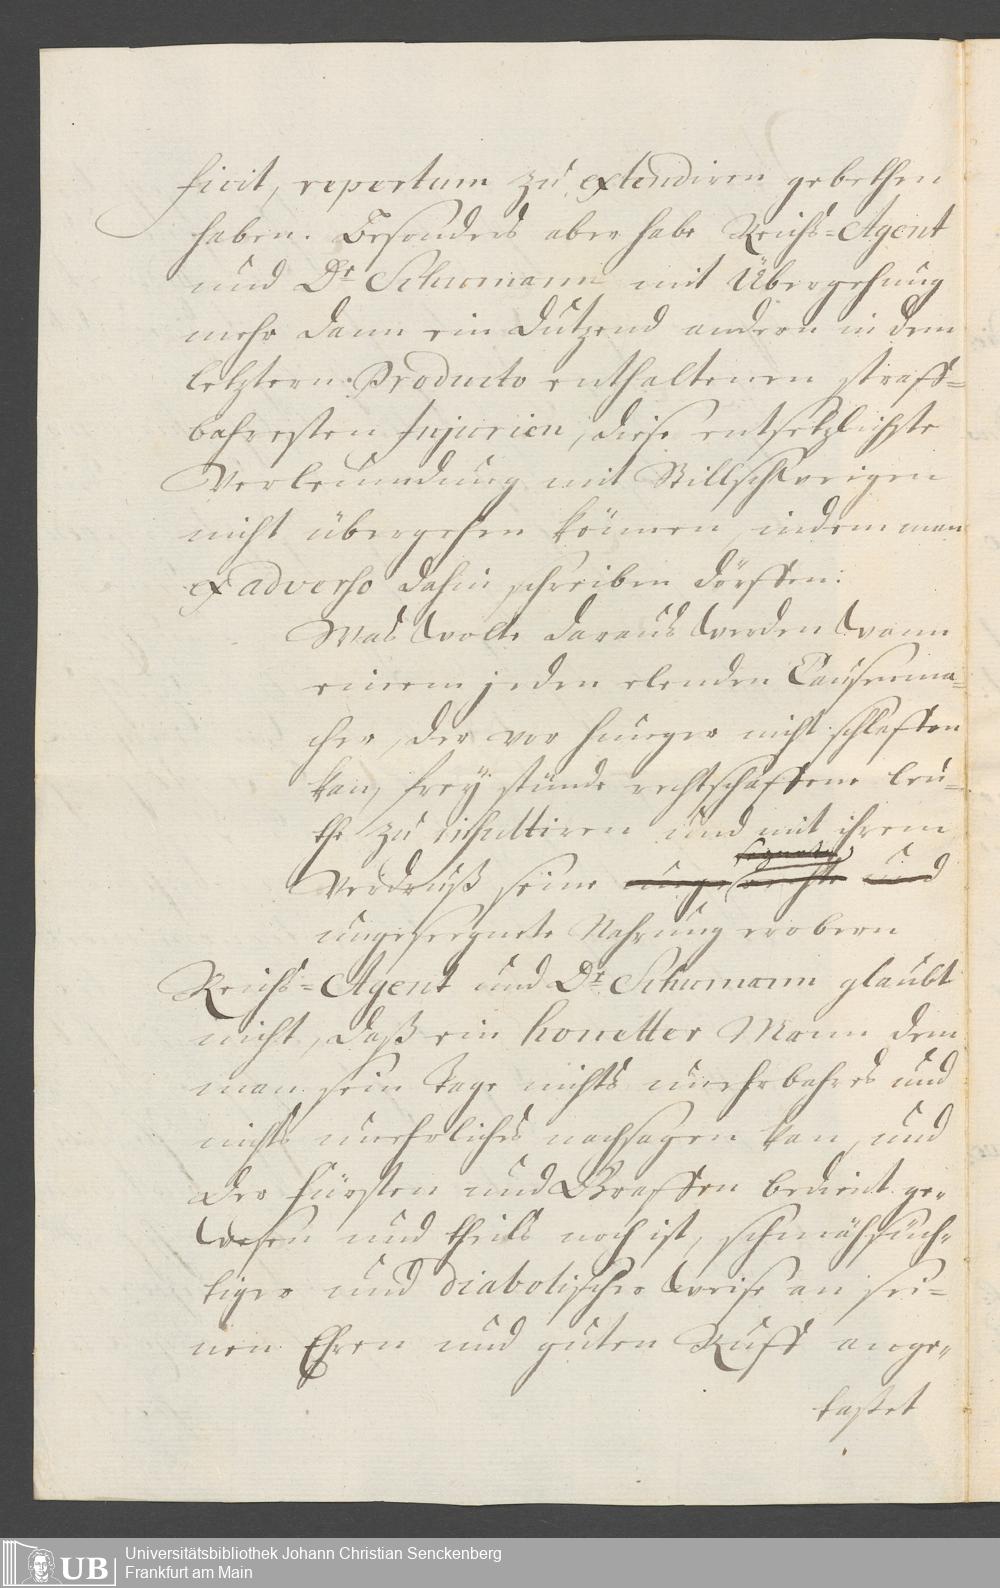 ficit, repertum zu extendiren gebethen
haben. Besonders aber habe Reichs=Agent
und Dr Schumann mit Übergehung
mehr dann ein Dutzend andern in dem
letztern Producto enthaltenen straff=
bahresten Injurien, diese entsetzlichste
Verleumdung mit Stillschweigen
nicht übergehen können, indem man
ex adverso dahin schreiben dörffen:
Was wolte daraus werden wann
einem jeden elenden Causenma=
cher, der vor Hunger nicht schlaffen
kan, frey stünde rechtschaffene Leu=
the zu insultiren und mit ihrem
Verdruß seine
ungeseegnete Nahrung erobern
Reichs=Agent und Dr Schumann glaubt
nicht, daß ein honetter Mann dem
man sein Tage nichts unehrbahres und
nichts unehrliches nachsagen kan, und
der Fürsten und Graffen bedient ge=
wesen und theils noch ist, schmähsüch=
tiger und diabolischer weise an sei=
nen Ehren und guten Ruff ange=
tastet
UB Universitätsbibliothek Johann Christian Senckenberg
Frankfurt am Main